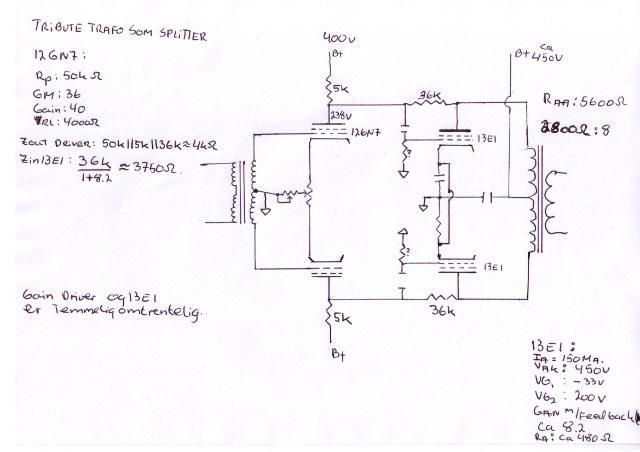 TRIBUTE TRAFO SOM SPLITTER
12GN7:
Rp: 50k Ω
GM: 36
Gain: 40
RL: 4000Ω
Zout DRIVER: 50k||5k||36k ≈ 4kΩ
Zin 13E1: 36k ≈ 3750Ω.
1+8.2
400V
B+
5k
238V
12GN7
36K
13E1
B+ ca 450V
RAA: 5600Ω
2800Ω: 8
?
?
13E1
36k
5k
B+
Gain Driver og 13E1
er Temmelig omtrentelig.
13E1:
IA = 150MA.
VAK: 450V
VG1: -33V
VG2: 200V
GAIN m/Feedback
Ca 8.2
RA: ca 480Ω